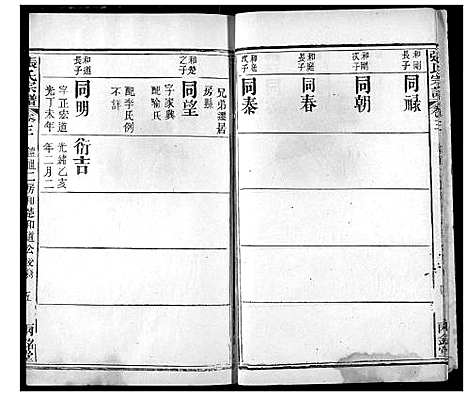 張氏宗譜 卷三
和剛長子
同祿
和剛次子
同朝
和庭長子
同春
和楚次子
同泰
兄弟遷居
房縣
和楚之子
同望
字家興
配喻氏
配李氏例
不詳
和道長子
同明
字正宏道
光丁未年
衍吉
光緒乙亥
年二月二
張氏宗譜
卷三
二房和楚和道公
五
兩銘堂